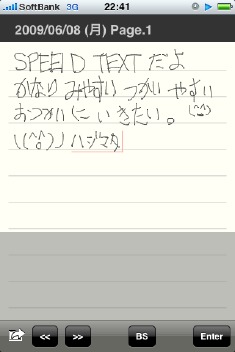 SoftBank 3G 22:41
2009/06/08 (月) Page.1
SPEED TEXT だよ
かなり みやすい つかい やすい
おつかい に いきたい。(^^)
\(^o^)/ ハジマタ
<< >> BS Enter